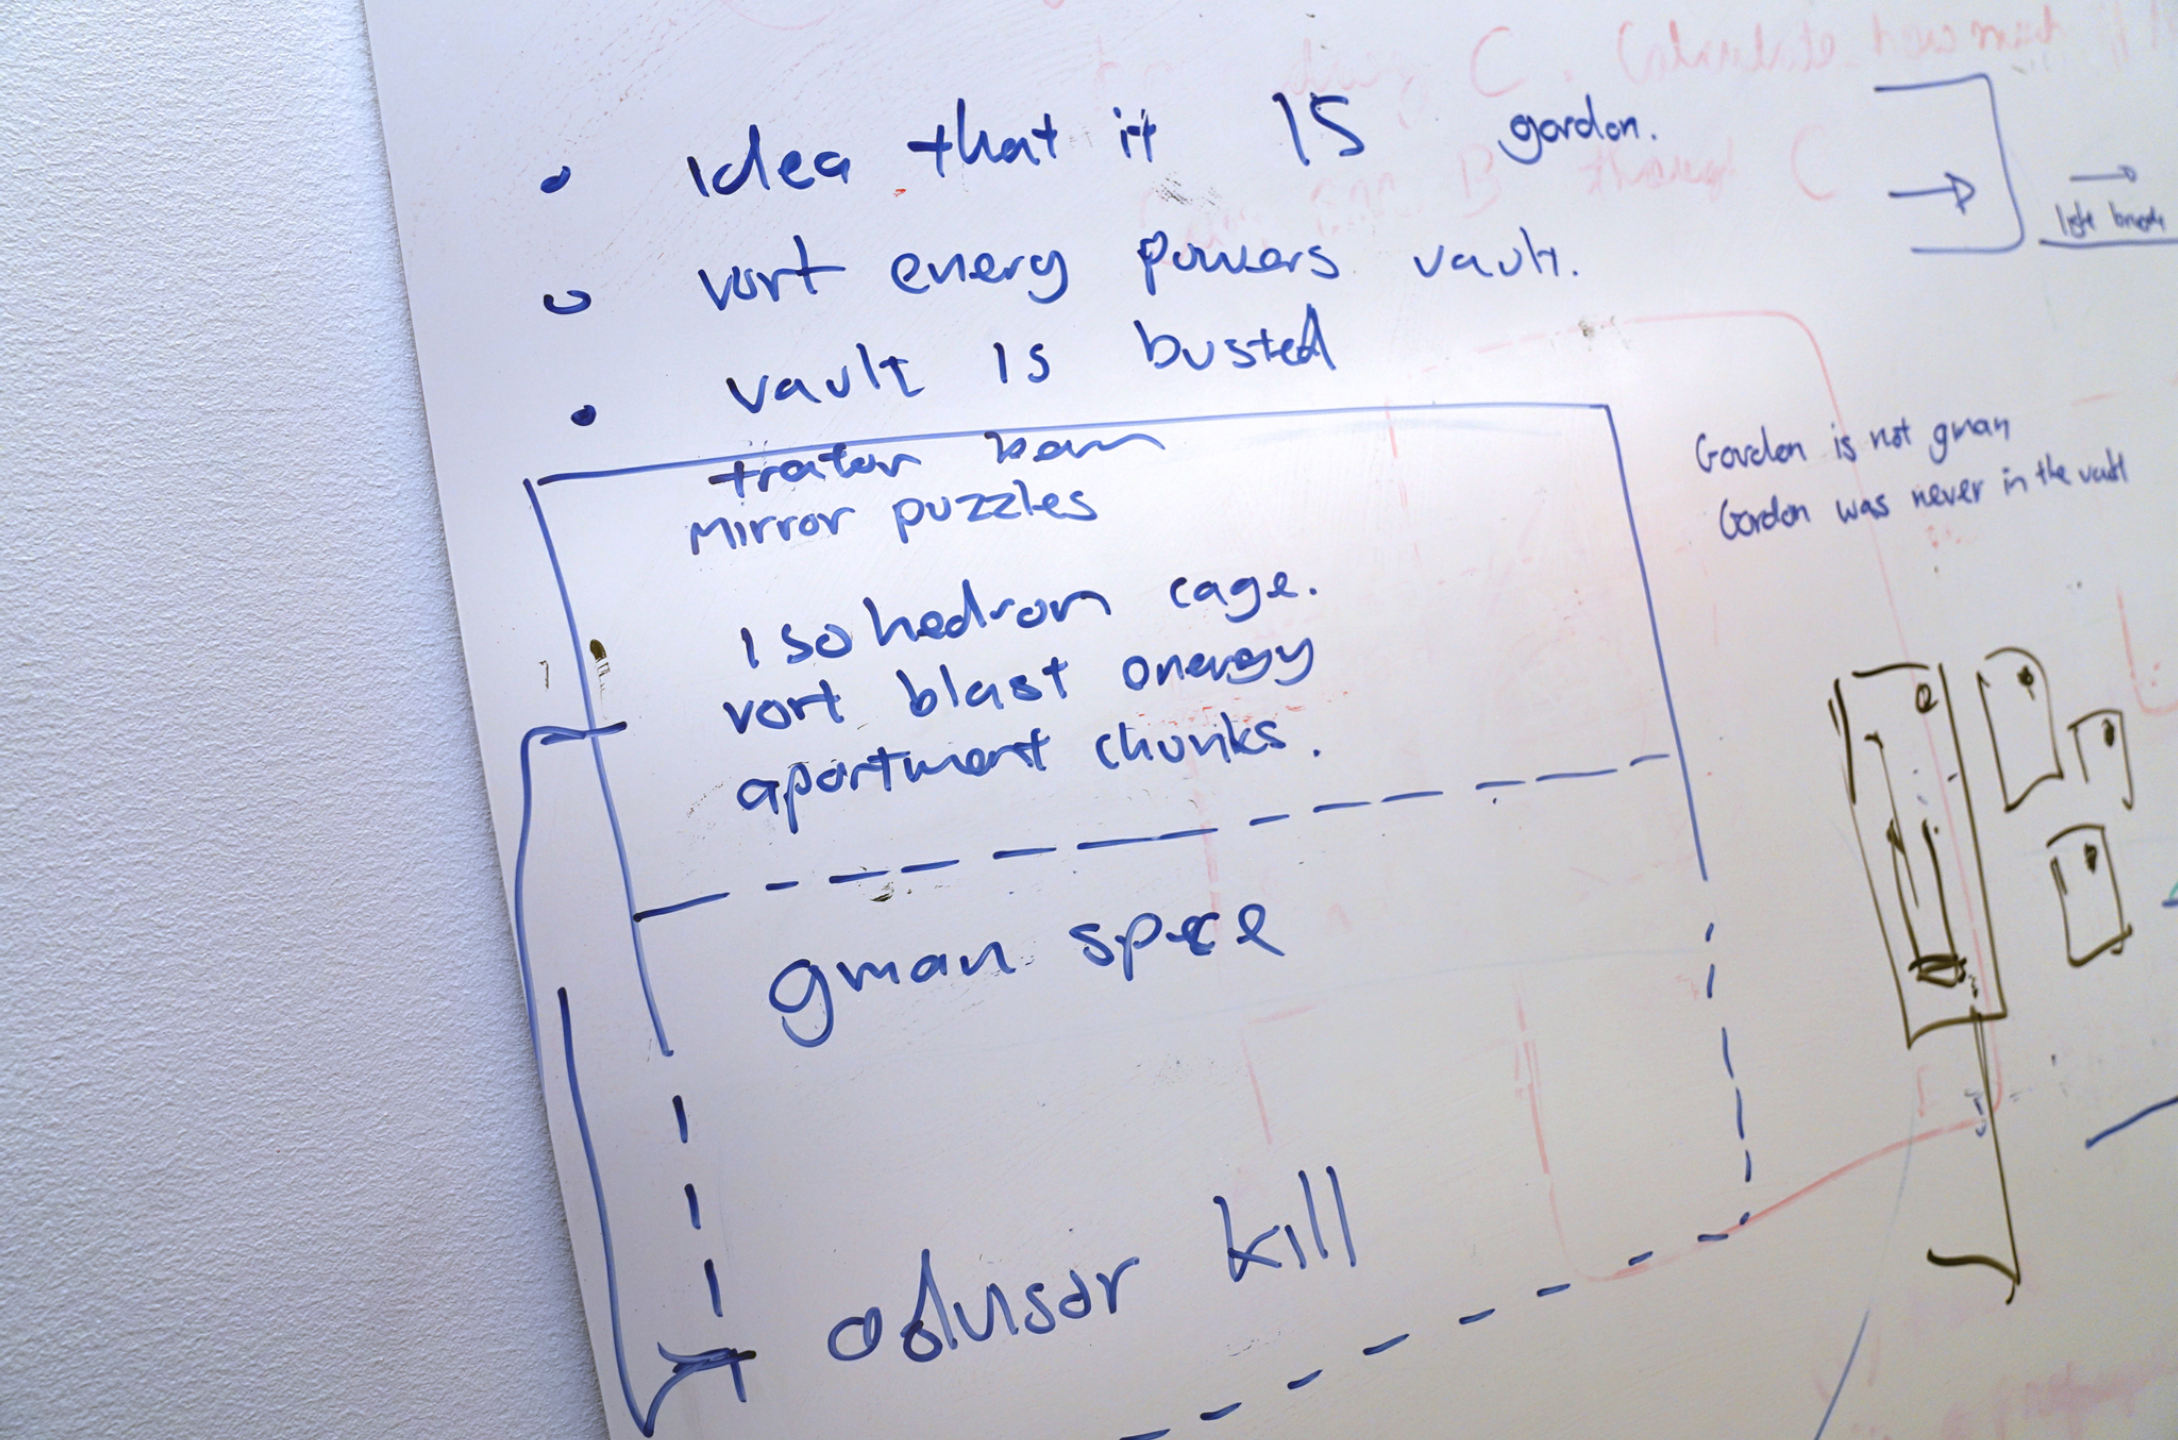 • Idea that it IS gordon.
• vort energy powers vault.
• vault is busted
trator beam
mirror puzzles
isohedron cage.
vort blast energy
apartment chunks.
gman space
advisor kill
Gordon is not gman
Gordon was never in the vault
light bridge
Calculate how much
B through C